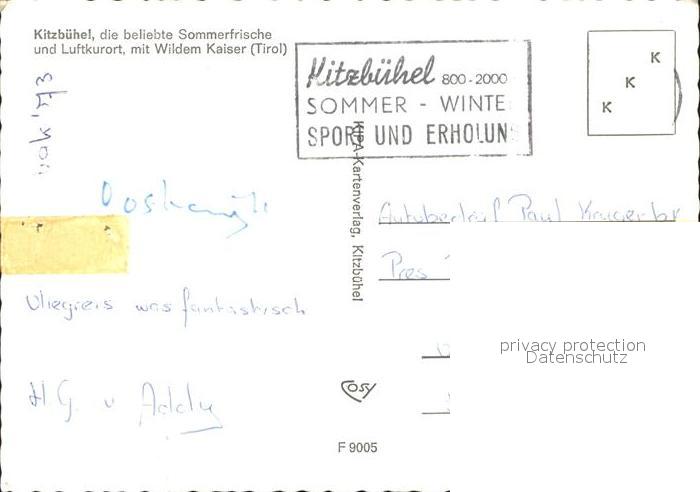 Kitzbühel, die beliebte Sommerfrische
und Luftkurort, mit Wildem Kaiser (Tirol)
Kitzbühel 800-2000
SOMMER - WINTE
SPORT UND ERHOLUN
K
K
K
KIPA-Kartenverlag, Kitzbühel
Paul
Pres
Vliegreis was fantastisch
H.G. v Addy
privacy protection
Datenschutz
Cosy
F 9005